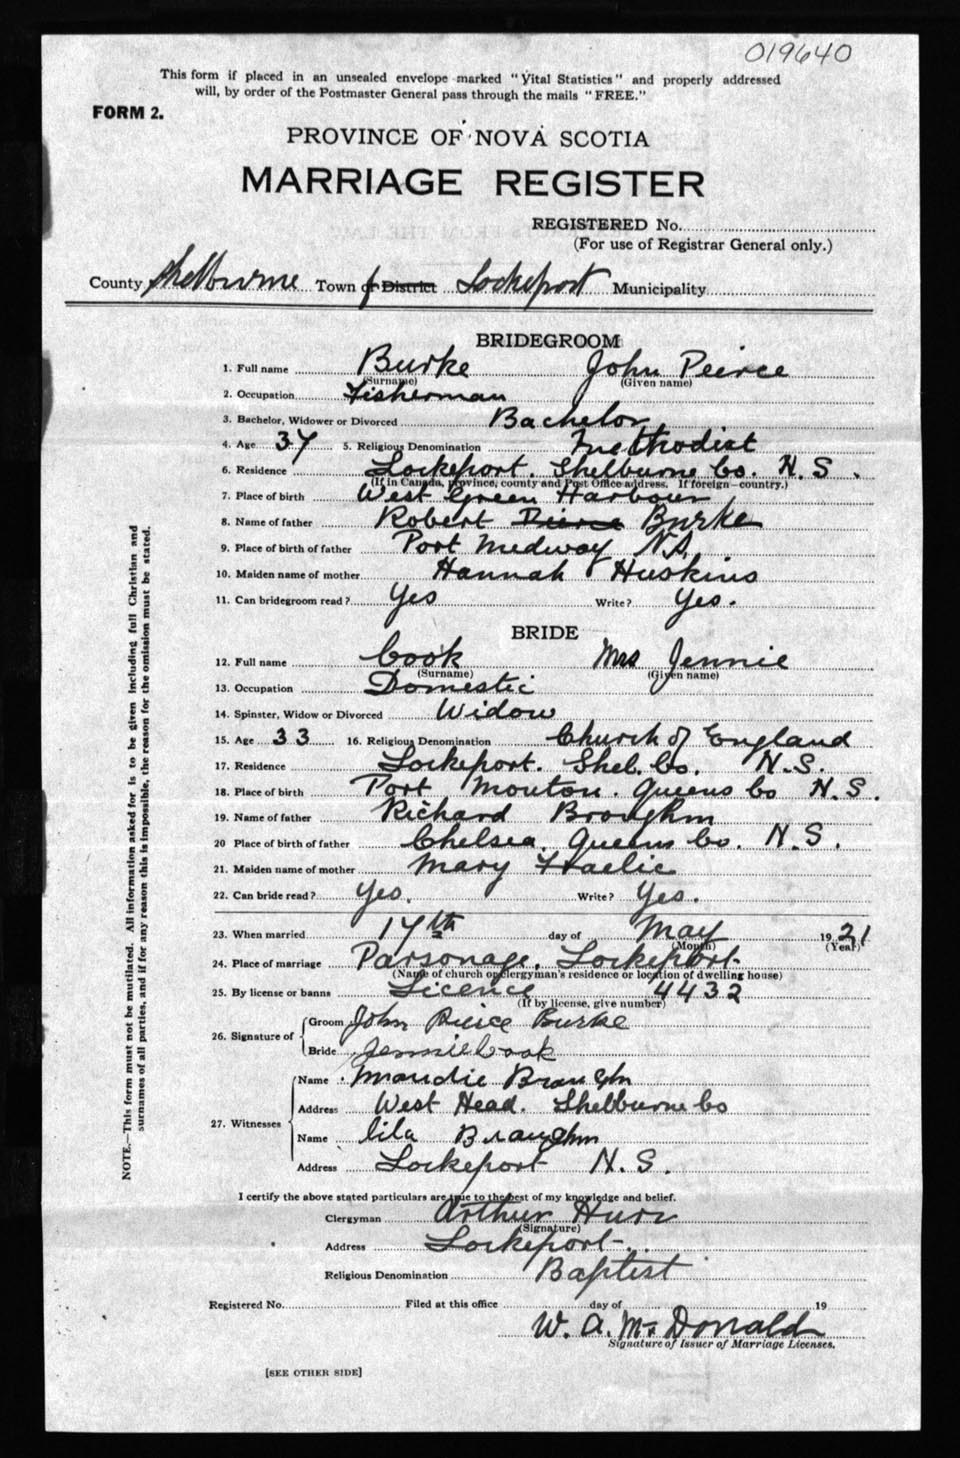 019640
This form if placed in an unsealed envelope marked "Vital Statistics" and properly addressed
will, by order of the Postmaster General pass through the mails "FREE."
FORM 2.
PROVINCE OF NOVA SCOTIA
MARRIAGE REGISTER
REGISTERED No.
(For use of Registrar General only.)
County Shelburne Town or District Lockeport Municipality
BRIDEGROOM
1. Full name Burke John Peirce
(Surname) (Given name)
2. Occupation Fisherman
3. Bachelor, Widower or Divorced Bachelor
4. Age 37 5. Religious Denomination Methodist
6. Residence Lockeport. Shelburne Co. N.S.
(If in Canada, province, county and Post Office address. If foreign—country.)
7. Place of birth West Green Harbour
8. Name of father Robert Pierce Burke
9. Place of birth of father Port Medway N.S.
10. Maiden name of mother Hannah Huskins
11. Can bridegroom read? Yes Write? Yes.
BRIDE
12. Full name Cook Mrs Jennie
(Surname) (Given name)
13. Occupation Domestic
14. Spinster, Widow or Divorced Widow
15. Age 33 16. Religious Denomination Church of England
17. Residence Lockeport. Shel. Co. N.S.
18. Place of birth Port Mouton. Queens Co N.S.
19. Name of father Richard Broughm
20 Place of birth of father Chelsea. Queens Co. N.S.
21. Maiden name of mother Mary Fraelic
22. Can bride read? Yes. Write? Yes.
23. When married 17th day of May 1921
(Month) (Year)
24. Place of marriage Parsonage, Lockeport
(Name of church or clergyman's residence or location of dwelling house)
25. By license or banns Licence 4432
(If by license, give number)
26. Signature of Groom John Peirce Burke
Bride Jennie Cook
27. Witnesses Name Maudie Braughm
Address West Head. Shelburne Co
Name Lila Braughm
Address Lockeport N.S.
I certify the above stated particulars are true to the best of my knowledge and belief.
Clergyman Arthur Hurr
(Signature)
Address Lockeport
Religious Denomination Baptist
Registered No. Filed at this office day of 19
W. A. McDonald
Signature of Issuer of Marriage Licenses.
[SEE OTHER SIDE]
NOTE.—This form must not be mutilated. All information asked for is to be given including full Christian and
surnames of all parties, and if for any reason this is impossible, the reason for the omission must be stated.